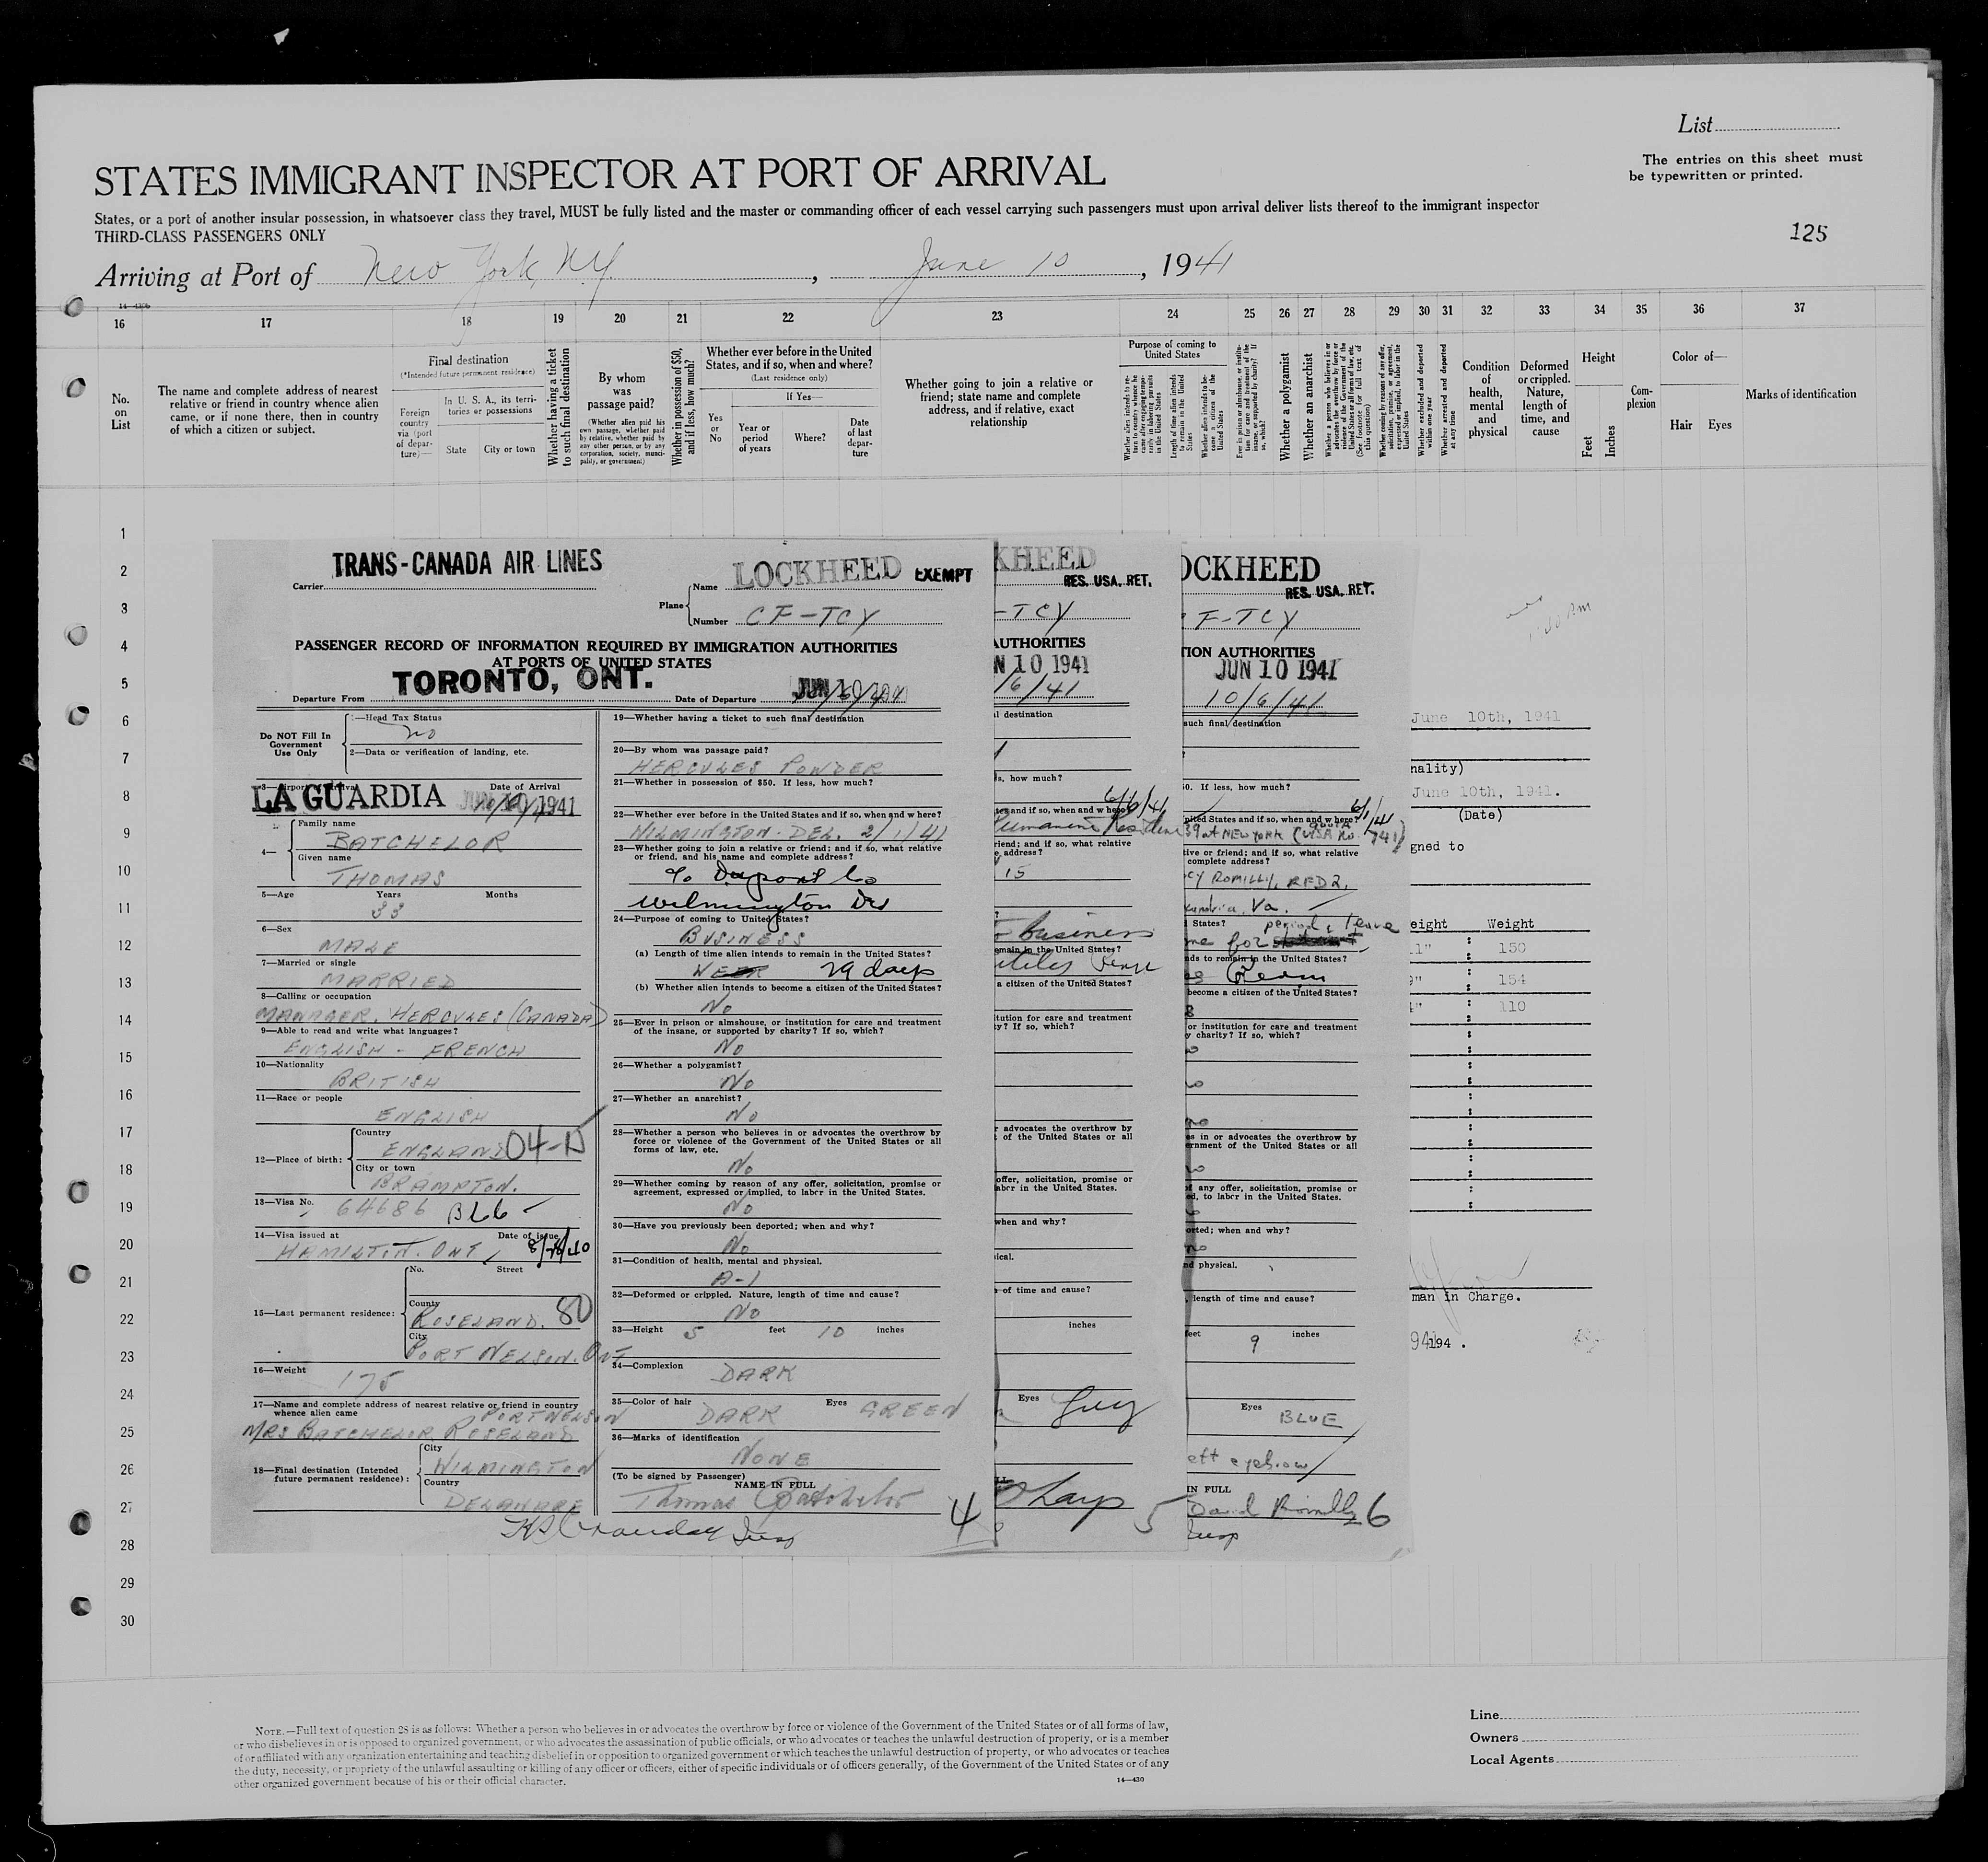 List
The entries on this sheet must
be typewritten or printed.
STATES IMMIGRANT INSPECTOR AT PORT OF ARRIVAL
States, or a port of another insular possession, in whatsoever class they travel, MUST be fully listed and the master or commanding officer of each vessel carrying such passengers must upon arrival deliver lists thereof to the immigrant inspector
THIRD-CLASS PASSENGERS ONLY
125
Arriving at Port of New York, NY, June 10, 1941
16 17 18 19 20 21 22 23 24 25 26 27 28 29 30 31 32 33 34 35 36 37
No. on List
The name and complete address of nearest
relative or friend in country whence alien
came, or if none there, then in country
of which a citizen or subject.
Final destination
(*Intended future permanent residence)
Foreign country via (port of departure)—
In U. S. A., its territories or possessions
State City or town
Whether having a ticket to such final destination
By whom was passage paid?
(Whether alien paid his own passage, whether paid by relative, whether paid by any other person, or by any corporation, society, municipality, or government)
Whether in possession of $50, and if less, how much?
Whether ever before in the United
States, and if so, when and where?
(Last residence only)
Yes or No
If Yes—
Year or period of years
Where?
Date of last departure
Whether going to join a relative or
friend; state name and complete
address, and if relative, exact
relationship
Purpose of coming to United States
Whether a polygamist
Whether an anarchist
Whether excluded and deported within one year
Whether arrested and deported at any time
Condition of health, mental and physical
Deformed or crippled. Nature, length of time, and cause
Height
Feet Inches
Complexion
Color of—
Hair Eyes
Marks of identification
1
2
3
4
5
6
7
8
9
10
11
12
13
14
15
16
17
18
19
20
21
22
23
24
25
26
27
28
29
30
TRANS-CANADA AIR LINES
Carrier
Plane
Name LOCKHEED EXEMPT
Number CF-TCY
PASSENGER RECORD OF INFORMATION REQUIRED BY IMMIGRATION AUTHORITIES
AT PORTS OF UNITED STATES
Departure From TORONTO, ONT. Date of Departure JUN 10 1941
Do NOT Fill In
Government
Use Only
1—Head Tax Status
no
2—Data or verification of landing, etc.
Date of Arrival
LA GUARDIA JUN 10 1941
4—
Family name
BATCHELOR
Given name
THOMAS
5—Age Years Months
33
6—Sex
MALE
7—Married or single
MARRIED
8—Calling or occupation
MANAGER. HERCULES (CANADA)
9—Able to read and write what languages?
ENGLISH - FRENCH
10—Nationality
BRITISH
11—Race or people
ENGLISH
12—Place of birth:
Country
ENGLAND 04-15
City or town
BRAMPTON.
13—Visa No.
64686
14—Visa issued at Date of issue
HAMILTON. ONT, 8/28/40
15—Last permanent residence:
No. Street
County
ROSELAND. 80
City
PORT NELSON. ONT
16—Weight
175
17—Name and complete address of nearest relative or friend in country
whence alien came PORT NELSON
MRS BATCHELOR ROSELAND
18—Final destination (Intended
future permanent residence):
City
WILMINGTON
Country
DELAWARE
19—Whether having a ticket to such final destination
20—By whom was passage paid?
HERCULES POWDER
21—Whether in possession of $50. If less, how much?
22—Whether ever before in the United States and if so, when and where?
WILMINGTON. DEL. 2/1/41
23—Whether going to join a relative or friend; and if so, what relative
or friend, and his name and complete address?
To Dupont Co
Wilmington Del
24—Purpose of coming to United States?
BUSINESS
(a) Length of time alien intends to remain in the United States?
WEEK 29 days
(b) Whether alien intends to become a citizen of the United States?
No
25—Ever in prison or almshouse, or institution for care and treatment
of the insane, or supported by charity? If so, which?
No
26—Whether a polygamist?
No
27—Whether an anarchist?
No
28—Whether a person who believes in or advocates the overthrow by
force or violence of the Government of the United States or all
forms of law, etc.
No
29—Whether coming by reason of any offer, solicitation, promise or
agreement, expressed or implied, to labor in the United States.
No
30—Have you previously been deported; when and why?
No
31—Condition of health, mental and physical.
A-1
32—Deformed or crippled. Nature, length of time and cause?
No
33—Height 5 feet 10 inches
34—Complexion
DARK
35—Color of hair DARK Eyes GREEN
36—Marks of identification
NONE
(To be signed by Passenger)
NAME IN FULL
Thomas Batchelor
4
KHEED
RES. USA. RET.
-TCY
AUTHORITIES
N 10 1941
/6/41
l destination
s, how much?
6/6/41
es and if so, when and where?
Permanent Residence
riend; and if so, what relative
address?
15
business
emain in the United States?
a citizen of the United States?
itution for care and treatment
y? If so, which?
r advocates the overthrow by
t of the United States or all
offer, solicitation, promise or
abor in the United States.
when and why?
ical.
of time and cause?
inches
Eyes Grey
5
OCKHEED
RES. USA. RET.
F-TCY
TION AUTHORITIES
JUN 10 1941
10/6/41
such final destination
0. If less, how much?
6/1/41
nited States and if so, when and where?
39 at NEW YORK
tive or friend; and if so, what relative
complete address?
CY ROMILLY, RFD 2,
xandria, Va.
States?
nds to remain in the United States?
become a citizen of the United States?
or institution for care and treatment
y charity? If so, which?
no
no
es in or advocates the overthrow by
ernment of the United States or all
no
f any offer, solicitation, promise or
ed, to labor in the United States.
orted; when and why?
no
nd physical.
, length of time and cause?
feet 9 inches
Eyes BLUE
eft eyebrow
IN FULL
David Romilly
6
June 10th, 1941
nality)
June 10th, 1941.
(Date)
gned to
eight Weight
1" : 150
9" : 154
4" : 110
man in Charge.
194 .
NOTE.—Full text of question 28 is as follows: Whether a person who believes in or advocates the overthrow by force or violence of the Government of the United States or of all forms of law,
or who disbelieves in or is opposed to organized government, or who advocates the assassination of public officials, or who advocates or teaches the unlawful destruction of property, or is a member
of or affiliated with any organization entertaining and teaching disbelief in or opposition to organized government or which teaches the unlawful destruction of property, or who advocates or teaches
the duty, necessity, or propriety of the unlawful assaulting or killing of any officer or officers, either of specific individuals or of officers generally, of the Government of the United States or of any
other organized government because of his or their official character.
14—430
Line
Owners
Local Agents